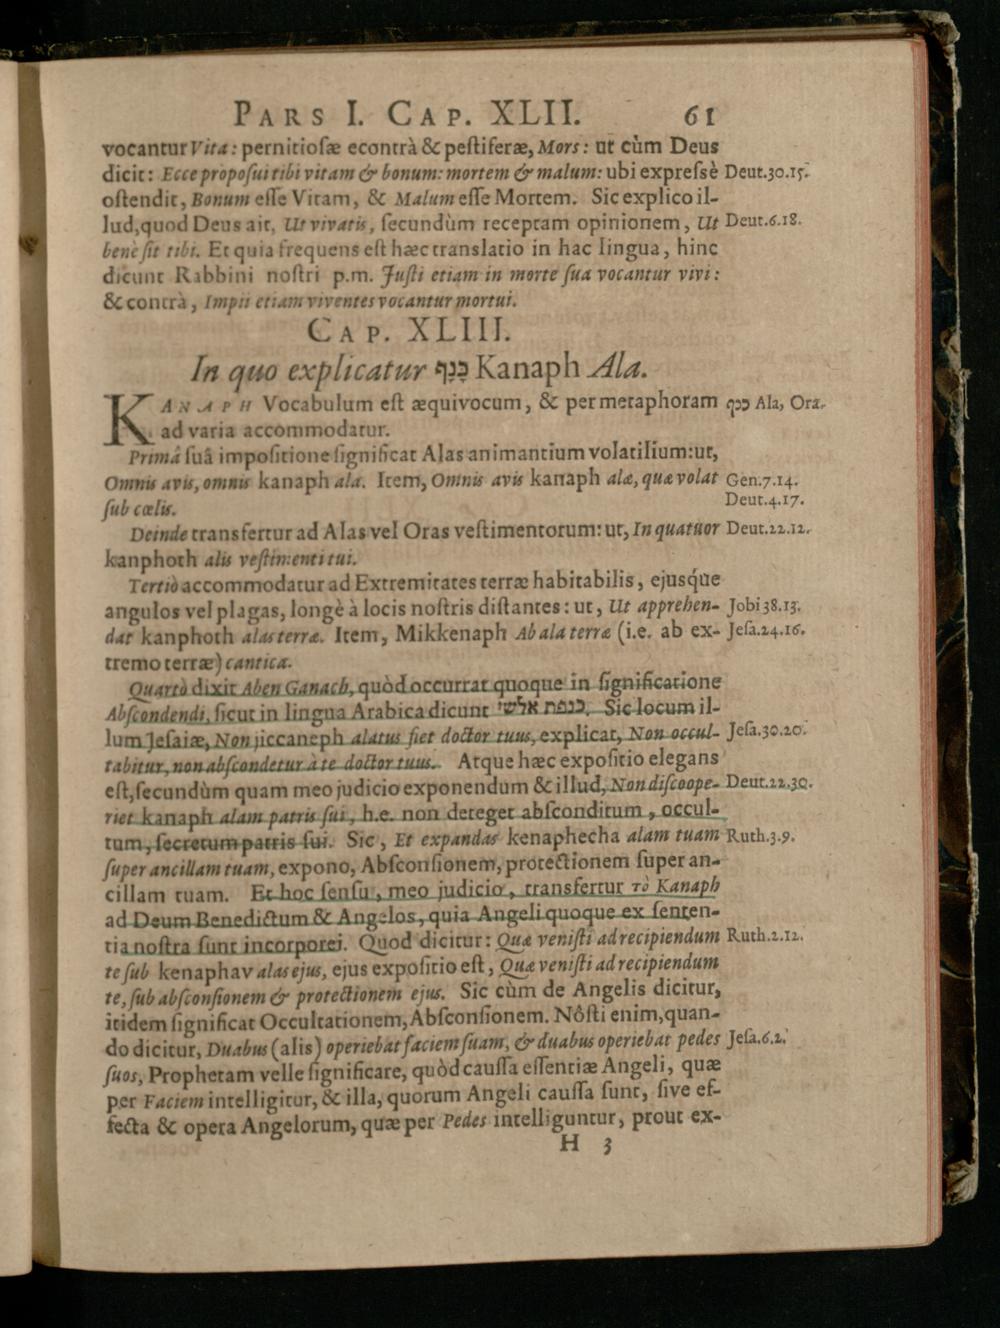 PARS I. CAP. XLII. 61
vocantur Vita: pernitiosæ econtrà & pestiferæ, Mors: ut cùm Deus
dicit: Ecce proposui tibi vitam & bonum: mortem & malum: ubi expressè Deut.30.15.
ostendit, Bonum esse Vitam, & Malum esse Mortem. Sic explico il-
lud, quod Deus ait, Ut vivatis, secundùm receptam opinionem, Ut Deut.6.18.
benè sit tibi. Et quia frequens est hæc translatio in hac lingua, hinc
dicunt Rabbini nostri p.m. Justi etiam in morte sua vocantur vivi:
& contrà, Impii etiam viventes vocantur mortui.
CAP. XLIII.
In quo explicatur כָּנָף Kanaph Ala.
KANAPH Vocabulum est æquivocum, & per metaphoram כנף Ala, Ora.
ad varia accommodatur.
Primâ suâ impositione significat Alas animantium volatilium: ut,
Omnis avis, omnis kanaph ala. Item, Omnis avis kanaph alæ, quæ volat Gen.7.14.
sub cœlis. Deut.4.17.
Deinde transfertur ad Alas vel Oras vestimentorum: ut, In quatuor Deut.22.12.
kanphoth alis vestimenti tui.
Tertiò accommodatur ad Extremitates terræ habitabilis, ejusque
angulos vel plagas, longè à locis nostris distantes: ut, Ut apprehen- Jobi 38.13.
dat kanphoth alas terræ. Item, Mikkenaph Ab ala terræ (i.e. ab ex- Jesa.24.16.
tremo terræ) cantica.
Quartò dixit Aben Ganach, quòd occurrat quoque in significatione
Abscondendi, sicut in lingua Arabica dicunt כנפת אלשי. Sic locum il-
lum Jesaiæ, Non jiccaneph alatus fiet doctor tuus, explicat, Non occul- Jesa.30.20.
tabitur, non abscondetur à te doctor tuus. Atque hæc expositio elegans
est, secundùm quam meo judicio exponendum & illud, Non discoope- Deut.22.30.
riet kanaph alam patris sui, h.e. non deteget absconditum, occul-
tum, secretum patris sui. Sic, Et expandas kenaphecha alam tuam Ruth.3.9.
super ancillam tuam, expono, Absconsionem, protectionem super an-
cillam tuam. Et hoc sensu, meo judicio, transfertur τὸ Kanaph
ad Deum Benedictum & Angelos, quia Angeli quoque ex senten-
tia nostra sunt incorporei. Quod dicitur: Quæ venisti ad recipiendum Ruth.2.12.
te sub kenaphav alas ejus, ejus expositio est, Quæ venisti ad recipiendum
te, sub absconsionem & protectionem ejus. Sic cùm de Angelis dicitur,
itidem significat Occultationem, Absconsionem. Nôsti enim, quan-
do dicitur, Duabus (alis) operiebat faciem suam, & duabus operiebat pedes Jesa.6.2.
suos, Prophetam velle significare, quòd caussa essentiæ Angeli, quæ
per Faciem intelligitur, & illa, quorum Angeli caussa sunt, sive ef-
fecta & opera Angelorum, quæ per Pedes intelliguntur, prout ex-
H 3